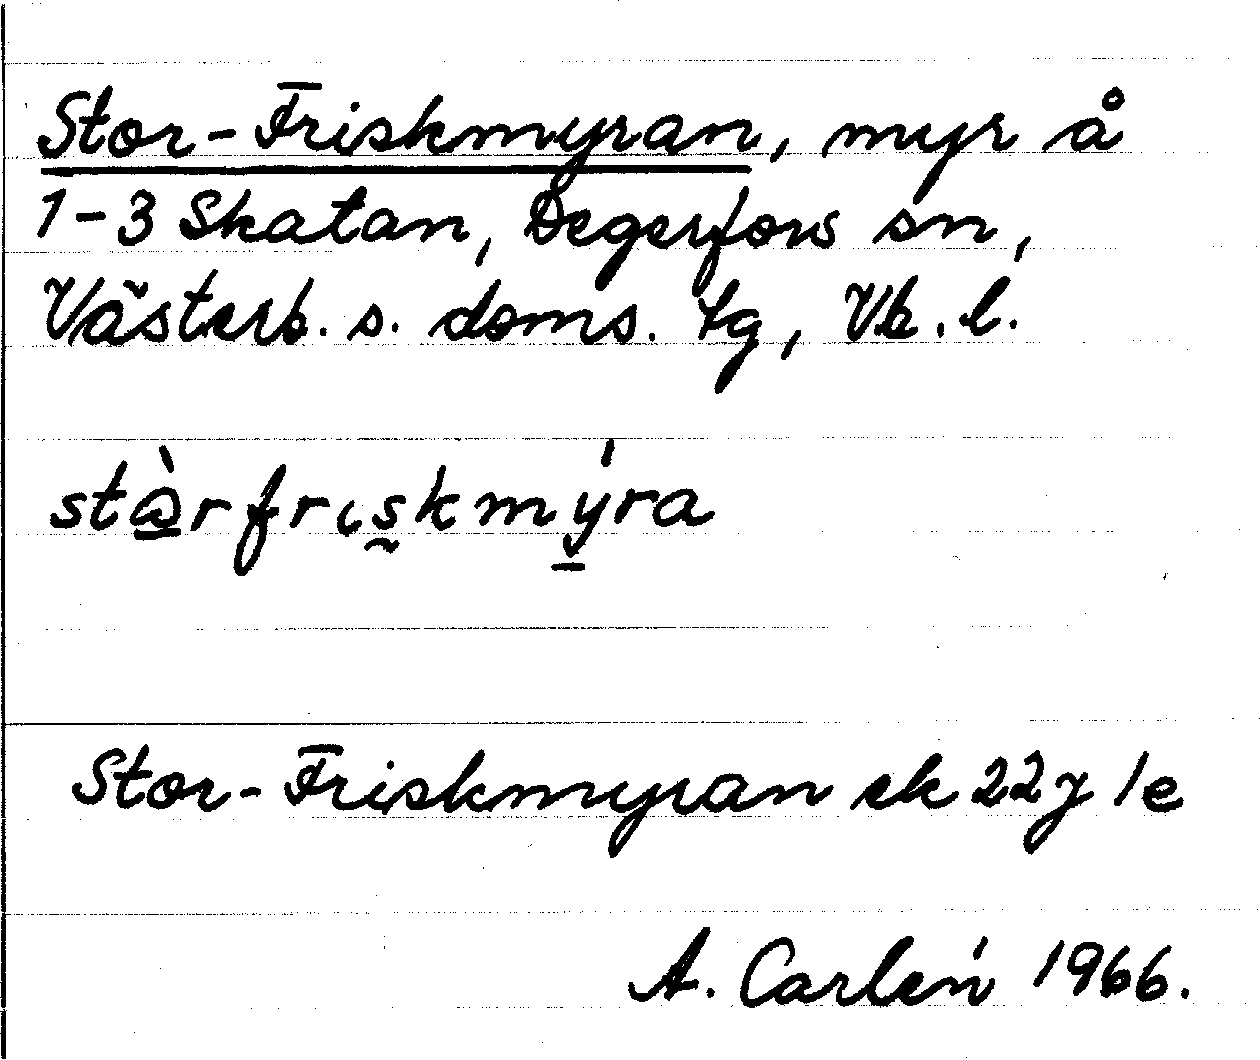 Stor-Friskmyran, myr å
1-3 Skatan, Degerfors sn,
Västerb. s. doms. tg, Vb. l.
stὰrfrıskmýra
Stor-Friskmyran ek 22j 1e
A. Carlén 1966.